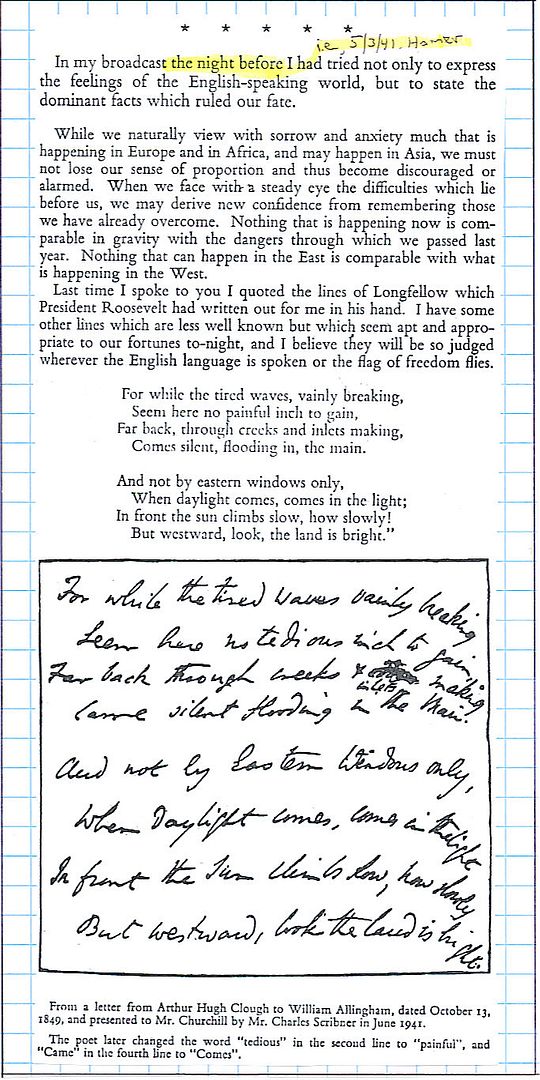 * * * * *
i.e, 5/3/41.
In my broadcast the night before I had tried not only to express
the feelings of the English-speaking world, but to state the
dominant facts which ruled our fate.
While we naturally view with sorrow and anxiety much that is
happening in Europe and in Africa, and may happen in Asia, we must
not lose our sense of proportion and thus become discouraged or
alarmed. When we face with a steady eye the difficulties which lie
before us, we may derive new confidence from remembering those
we have already overcome. Nothing that is happening now is com-
parable in gravity with the dangers through which we passed last
year. Nothing that can happen in the East is comparable with what
is happening in the West.
Last time I spoke to you I quoted the lines of Longfellow which
President Roosevelt had written out for me in his hand. I have some
other lines which are less well known but which seem apt and appro-
priate to our fortunes to-night, and I believe they will be so judged
wherever the English language is spoken or the flag of freedom flies.
For while the tired waves, vainly breaking,
Seem here no painful inch to gain,
Far back, through creeks and inlets making,
Comes silent, flooding in, the main.
And not by eastern windows only,
When daylight comes, comes in the light;
In front the sun climbs slow, how slowly!
But westward, look, the land is bright.”
For while the tired waves vainly breaking
Seem here no tedious inch to gain,
Far back through creeks & inlets making
Came silent flooding in the Main.
And not by Eastern Windows only,
When Daylight comes, comes in the light
In front the Sun climbs slow, how slowly
But westward, look the land is bright.
From a letter from Arthur Hugh Clough to William Allingham, dated October 13,
1849, and presented to Mr. Churchill by Mr. Charles Scribner in June 1941.
The poet later changed the word “tedious” in the second line to “painful”, and
“Came” in the fourth line to “Comes”.